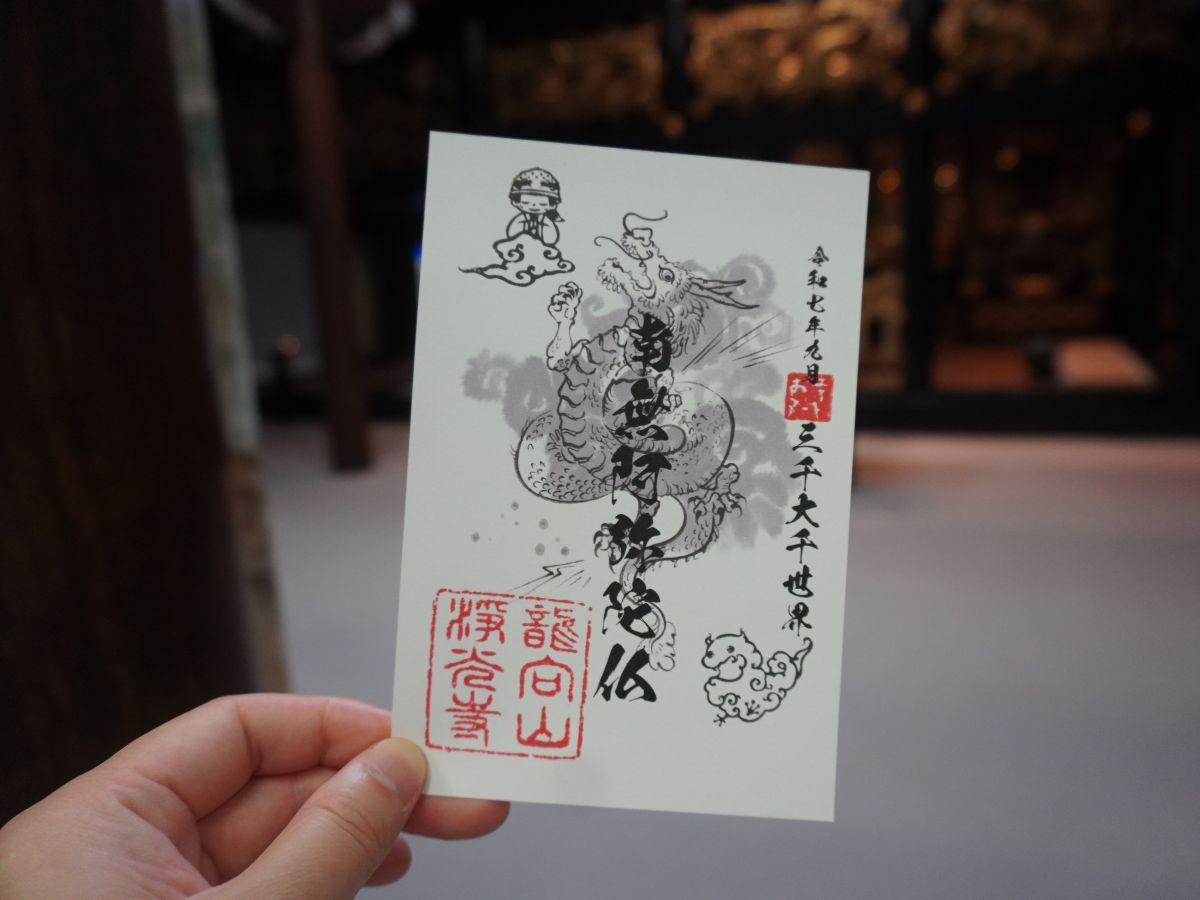 令和七年九月
三千大千世界
南無阿弥陀仏
龍向山
淨光寺